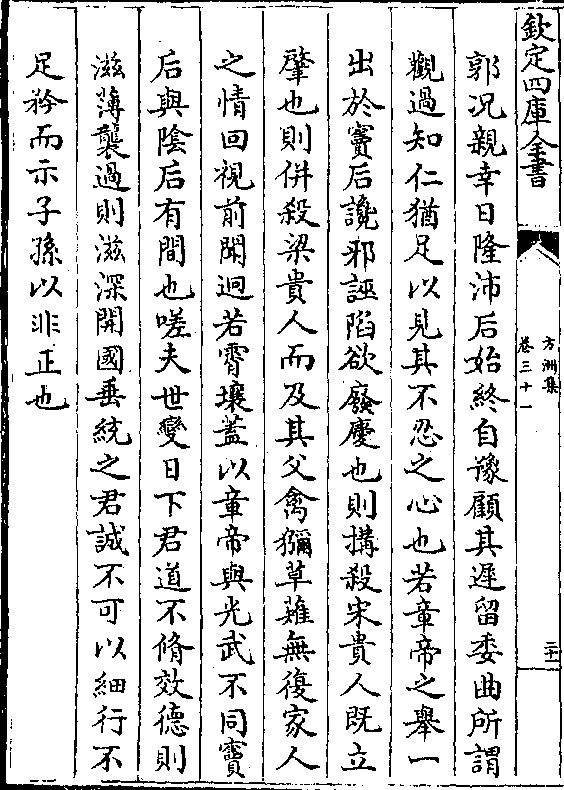 欽定四庫全書
方洲集
卷三十一
二十一
郭况親幸日隆沛后始終自豫顧其遲留委曲所謂
觀過知仁猶足以見其不忍之心也若章帝之舉一
出於竇后讒邪誣陷欲廢慶也則搆殺宋貴人既立
肇也則併殺梁貴人而及其父禽獮草薙無復家人
之情回視前聞迥若霄壤蓋以章帝與光武不同竇
后與陰后有間也嗟夫世變日下君道不脩效德則
滋薄襲過則滋深開國垂統之君誠不可以細行不
足矜而示子孫以非正也